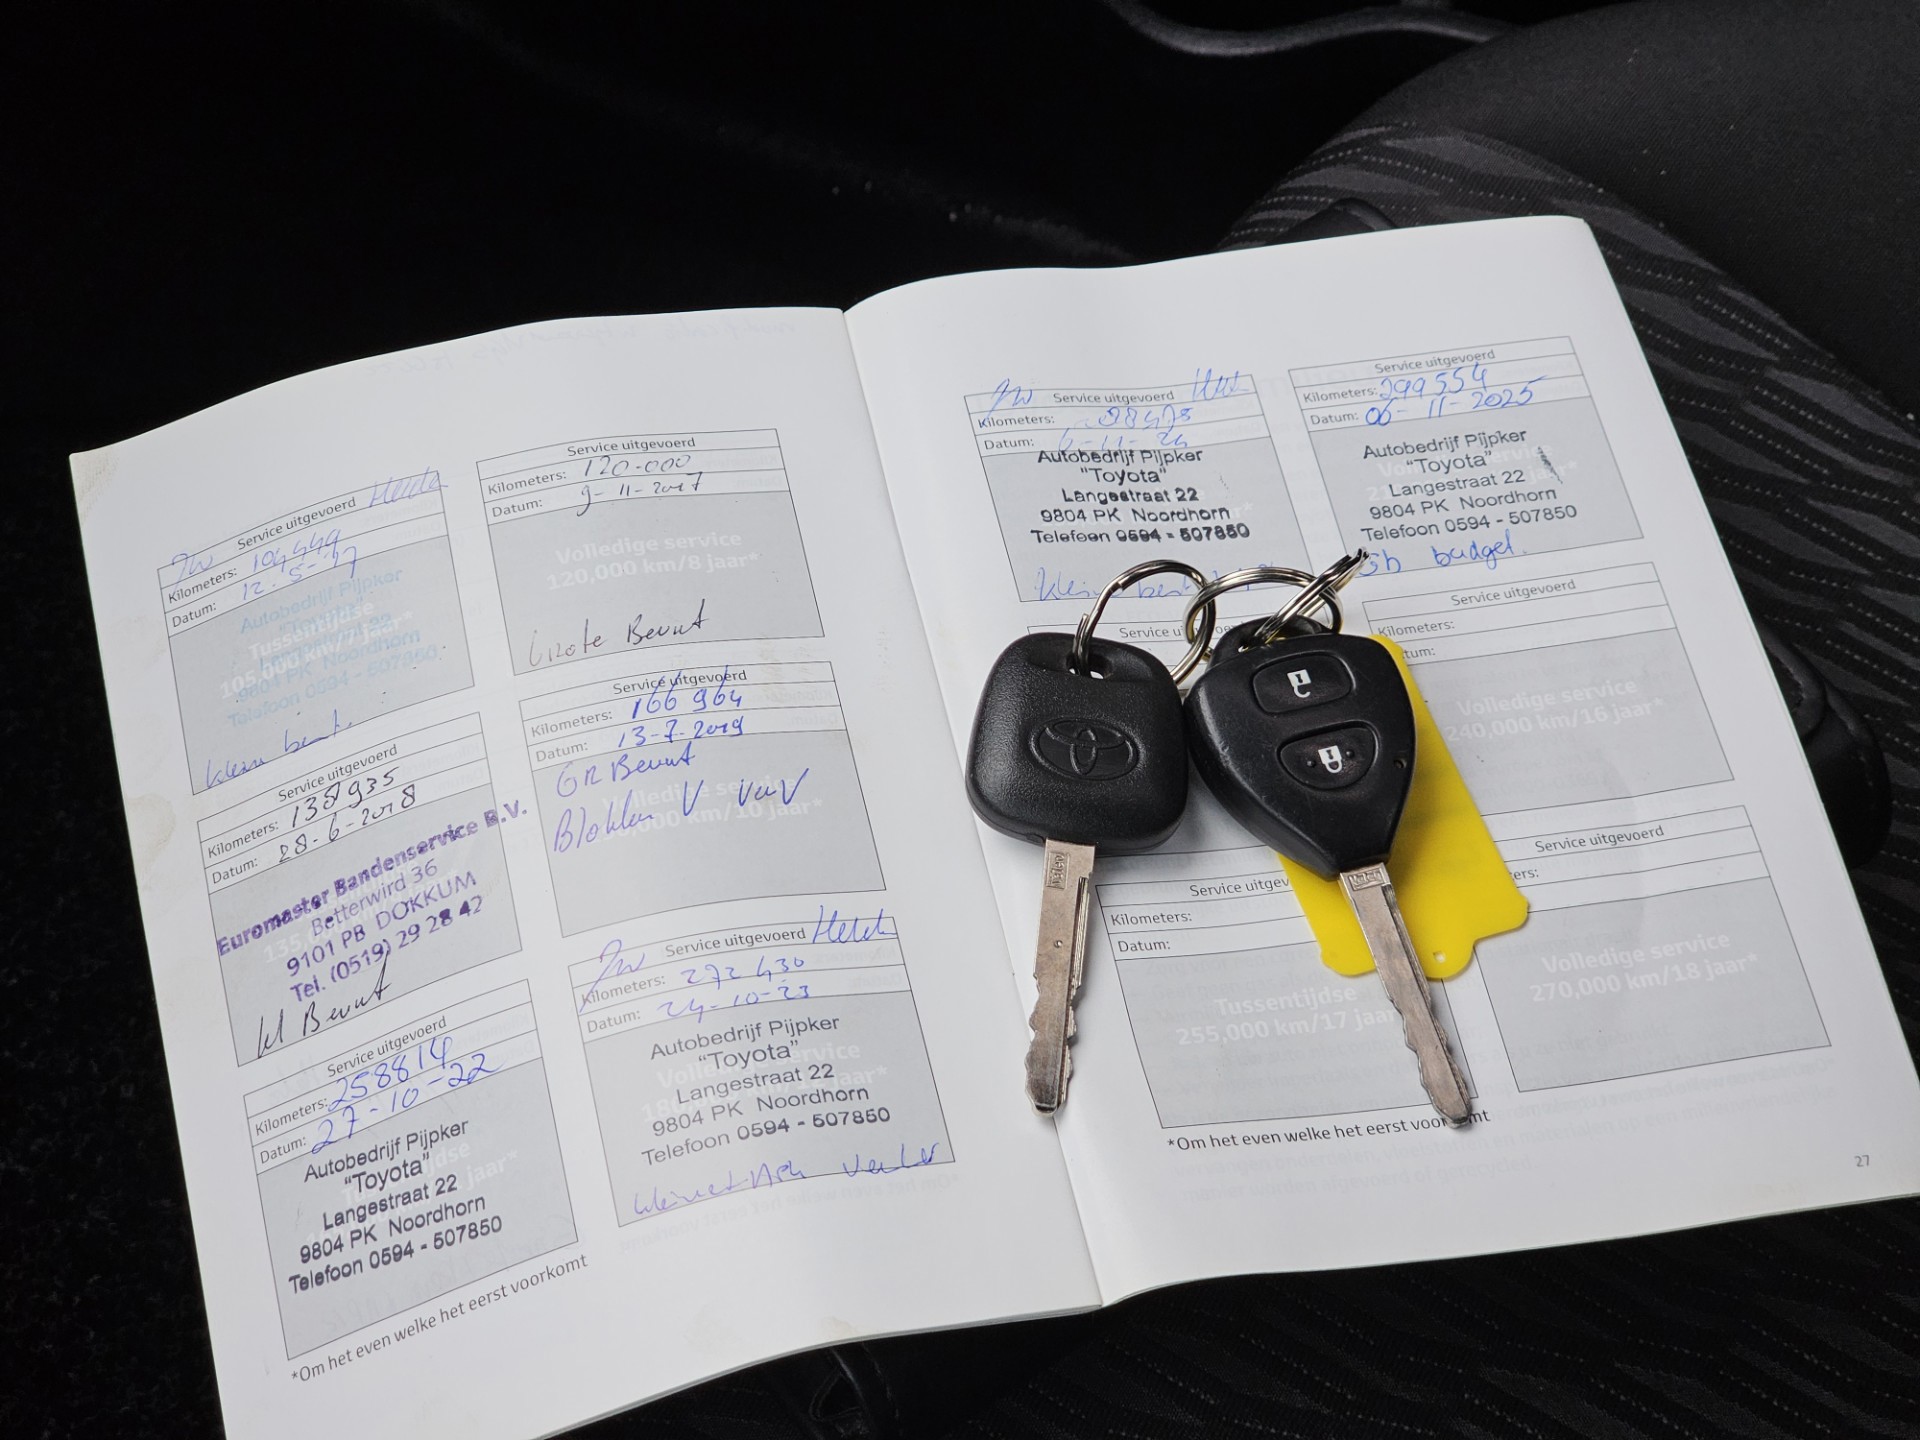 Service uitgevoerd
Kilometers: 104449
Datum: 12-5-17
Autobedrijf Pijpker
"Toyota"
Tussentijdse
Langestraat 22
105,000 km/7 jaar*
9804 PK Noordhorn
Telefoon 0594 - 507850
klein beurt
Service uitgevoerd
Kilometers: 138935
Datum: 28-6-2018
Euromaster Bandenservice B.V.
Betterwird 36
9101 PB DOKKUM
Tel. (0519) 29 28 42
kl Beurt
Service uitgevoerd
Kilometers: 258814
Datum: 27-10-22
Autobedrijf Pijpker
"Toyota"
Langestraat 22
9804 PK Noordhorn
Telefoon 0594 - 507850
*Om het even welke het eerst voorkomt
Service uitgevoerd
Kilometers: 120.000
Datum: 9-11-2017
Volledige service
120,000 km/8 jaar*
Grote Beurt
Service uitgevoerd
Kilometers: 166 964
Datum: 13-7-2019
GR Beurt
Blokken V
Service uitgevoerd
Kilometers: 272430
Datum: 24-10-23
Autobedrijf Pijpker
"Toyota"
Langestraat 22
9804 PK Noordhorn
Telefoon 0594 - 507850
Service uitgevoerd
Kilometers:
Datum: 6-11-24
Autobedrijf Pijpker
"Toyota"
Langestraat 22
9804 PK Noordhorn
Telefoon 0594 - 507850
Service uitgevoerd
Kilometers: 299554
Datum: 06-11-2025
Autobedrijf Pijpker
"Toyota"
Langestraat 22
9804 PK Noordhorn
Telefoon 0594 - 507850
budget.
Service uitgevoerd
Kilometers:
Volledige service
240,000 km/16 jaar*
Kilometers:
Datum:
Tussentijdse
255,000 km/17 jaar
Service uitgevoerd
Volledige service
270,000 km/18 jaar*
*Om het even welke het eerst voorkomt
27